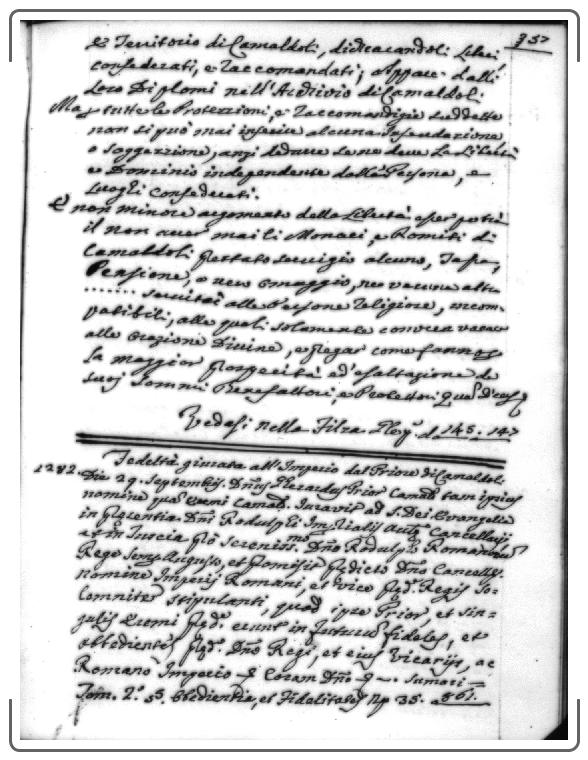 357
e Territorio di Camaldoli, dichiarandoli Liberi
confederati, e Raccomandati; Appare dalli
Loro Diplomi nell'Archivio di Camaldoli.
Ma tutte le Protezzioni, e Raccomandigie suddette
non si può mai inferire alcuna Infeudazione
o soggezzione, anzi dedurre se ne deve La Libertà
e Dominio independente dalla Persone, e
Luoghi confederati.
E non minore argomento della Libertà esser potrà
il non aver mai li Monaci, e Romiti di
Camaldoli prestato servigio alcuno, Tassa,
Pensione, o vero omaggio, ne veruna altra
....... servitù alle Persone Religiose, incom-
patibili, alle quali solamente conviea vacare
alle orazione Divine, e pregar come fanno
La maggior prosperità ed'esaltazione de
suoj Sommi Benefattori, e Protettori
Vedasi nella Filza 145. 147
1282. Fedeltà giurata all'Imperio dal Priore di Camaldoli
Die 29. Septembris. Dñus Gerardus Prior Camald. tam ipsius
nomine Eremi Camald. Iuravit ad S. Dei Evangelia
in Florentia Dñi Rodulphi Cancellarij
et in Tuscia Sereniss.mo Dño Rodulpho Romanorum
Rege Semp. Augusto, et promisit predicto Dño Cancell.
nomine Imperij Romani, et vice Regis so-
lemniter stipulanti, quod ipse Prior, et sin-
gulis Eremi erunt in futurum fideles, et
obbedientes Dño Regi, et eius Vicarijs, ac
Romano Imperio Coram Dño Sumari=
Tom. 2.° Obedientia, et Fidelitates 35. a 561.